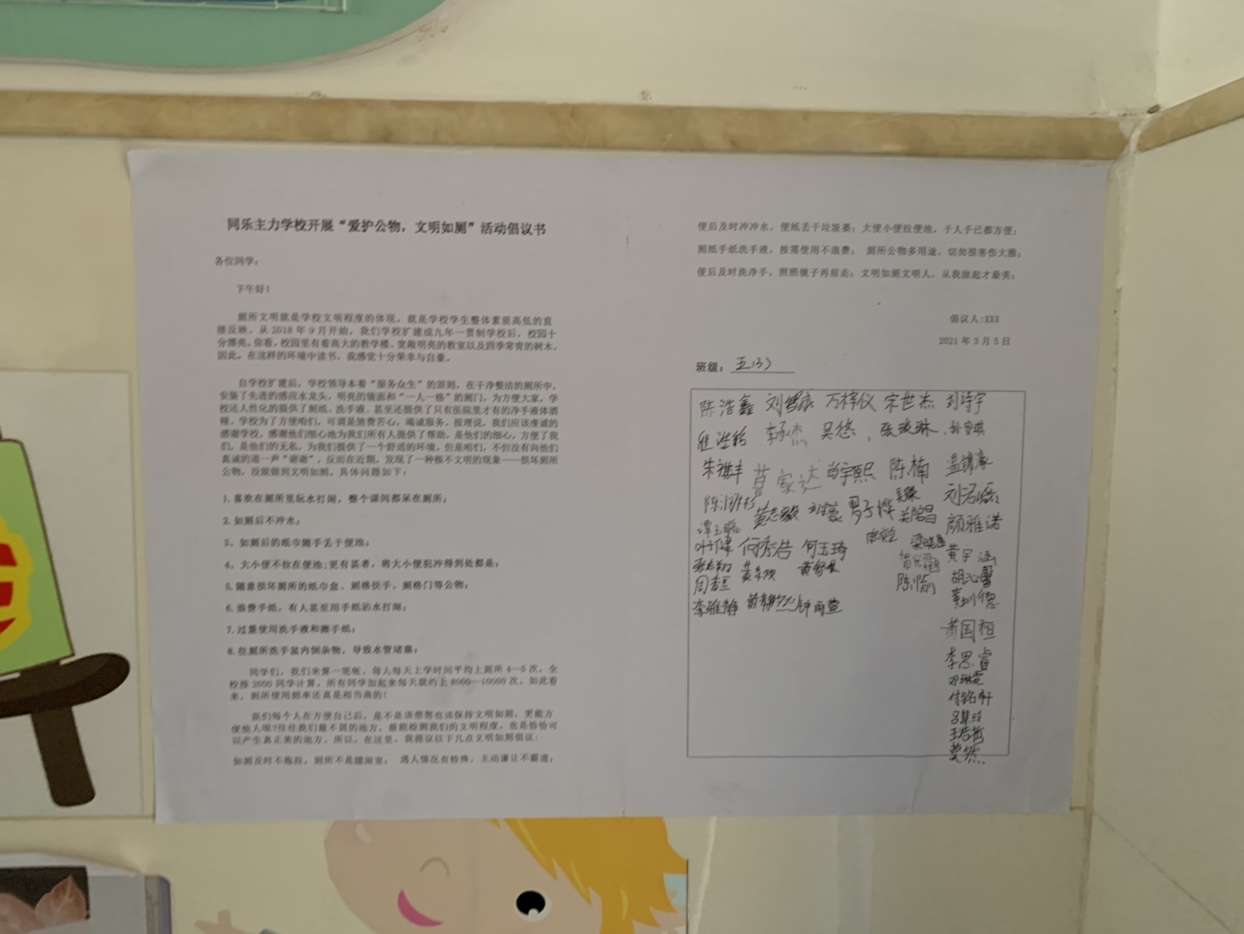 同乐主力学校开展“爱护公物，文明如厕”活动倡议书
各位同学：
下午好！
厕所文明就是学校文明程度的体现，就是学校学生整体素质高低的直
接反映。从2018年9月开始，我们学校扩建成九年一贯制学校后，校园十
分漂亮。你看，校园里有着高大的教学楼、宽敞明亮的教室以及四季常青的树木。
因此，在这样的环境中读书，我感觉十分荣幸与自豪。
自学校扩建后，学校领导本着“服务众生”的原则，在干净整洁的厕所中，
安装了先进的感应水龙头，明亮的镜面和“一人一格”的厕门，为方便大家，学
校还人性化的提供了厕纸、洗手液，甚至还提供了只有医院里才有的净手液体酒
精。学校为了方便咱们，可谓是煞费苦心，竭诚服务。按理说，我们应该虔诚的
感谢学校，感谢他们细心地为我们所有人提供了帮助，是他们的细心，方便了我
们，是他们的无私，为我们提供了一个舒适的环境。但是咱们，不但没有向他们
真诚的道一声“谢谢”，反而在近期，发现了一种极不文明的现象——损坏厕所
公物，没能做到文明如厕。具体问题如下：
1.喜欢在厕所里玩水打闹，整个课间都呆在厕所；
2.如厕后不冲水；
3、如厕后的纸巾随手丢于便池；
4、大小便不拉在便池；更有甚者，将大小便犯冲得到处都是；
5.随意损坏厕所的纸巾盒、厕格扶手、厕格门等公物；
6.浪费手纸，有人甚至用手纸沾水打闹；
7.过量使用洗手液和擦手纸；
8.往厕所洗手盆内倒杂物，导致水管堵塞；
同学们，我们来算一笔账，每人每天上学时间平均上厕所4—5次，全
校按2000同学计算，所有同学加起来每天就约上8000—10000次，如此看
来，厕所使用频率还真是相当高的！
我们每个人在方便自己后，是不是该想想也该保持文明如厕，更能方
便他人呢？往往我们最不屑的地方，最能检测我们的文明程度，也是恰恰可
以产生真正美的地方，所以，在这里，我提议以下几点文明如厕倡议：
如厕及时不拖拉，厕所不是播闹室； 遇人情况有特殊，主动谦让不霸道；
便后及时冲冲水，便纸丢于垃圾篓；大便小便拉便池，于人于已都方便；
厕纸手纸洗手液，按需使用不浪费； 厕所公物多用途，切勿损害伤大雅；
便后及时洗净手，照照镜子再前走；文明如厕文明人，从我做起才最美；
倡议人：XXX
2021年3月5日
班级：五(3)
陈浩鑫 万梓仪 宋世杰 刘诗宇
吴悠
朱祺丰 陈楠
黄志毅
颜雅诺
何秀浩 何玉琦
黄宇涵
胡沁馨
李雅静
黄国相
李思睿